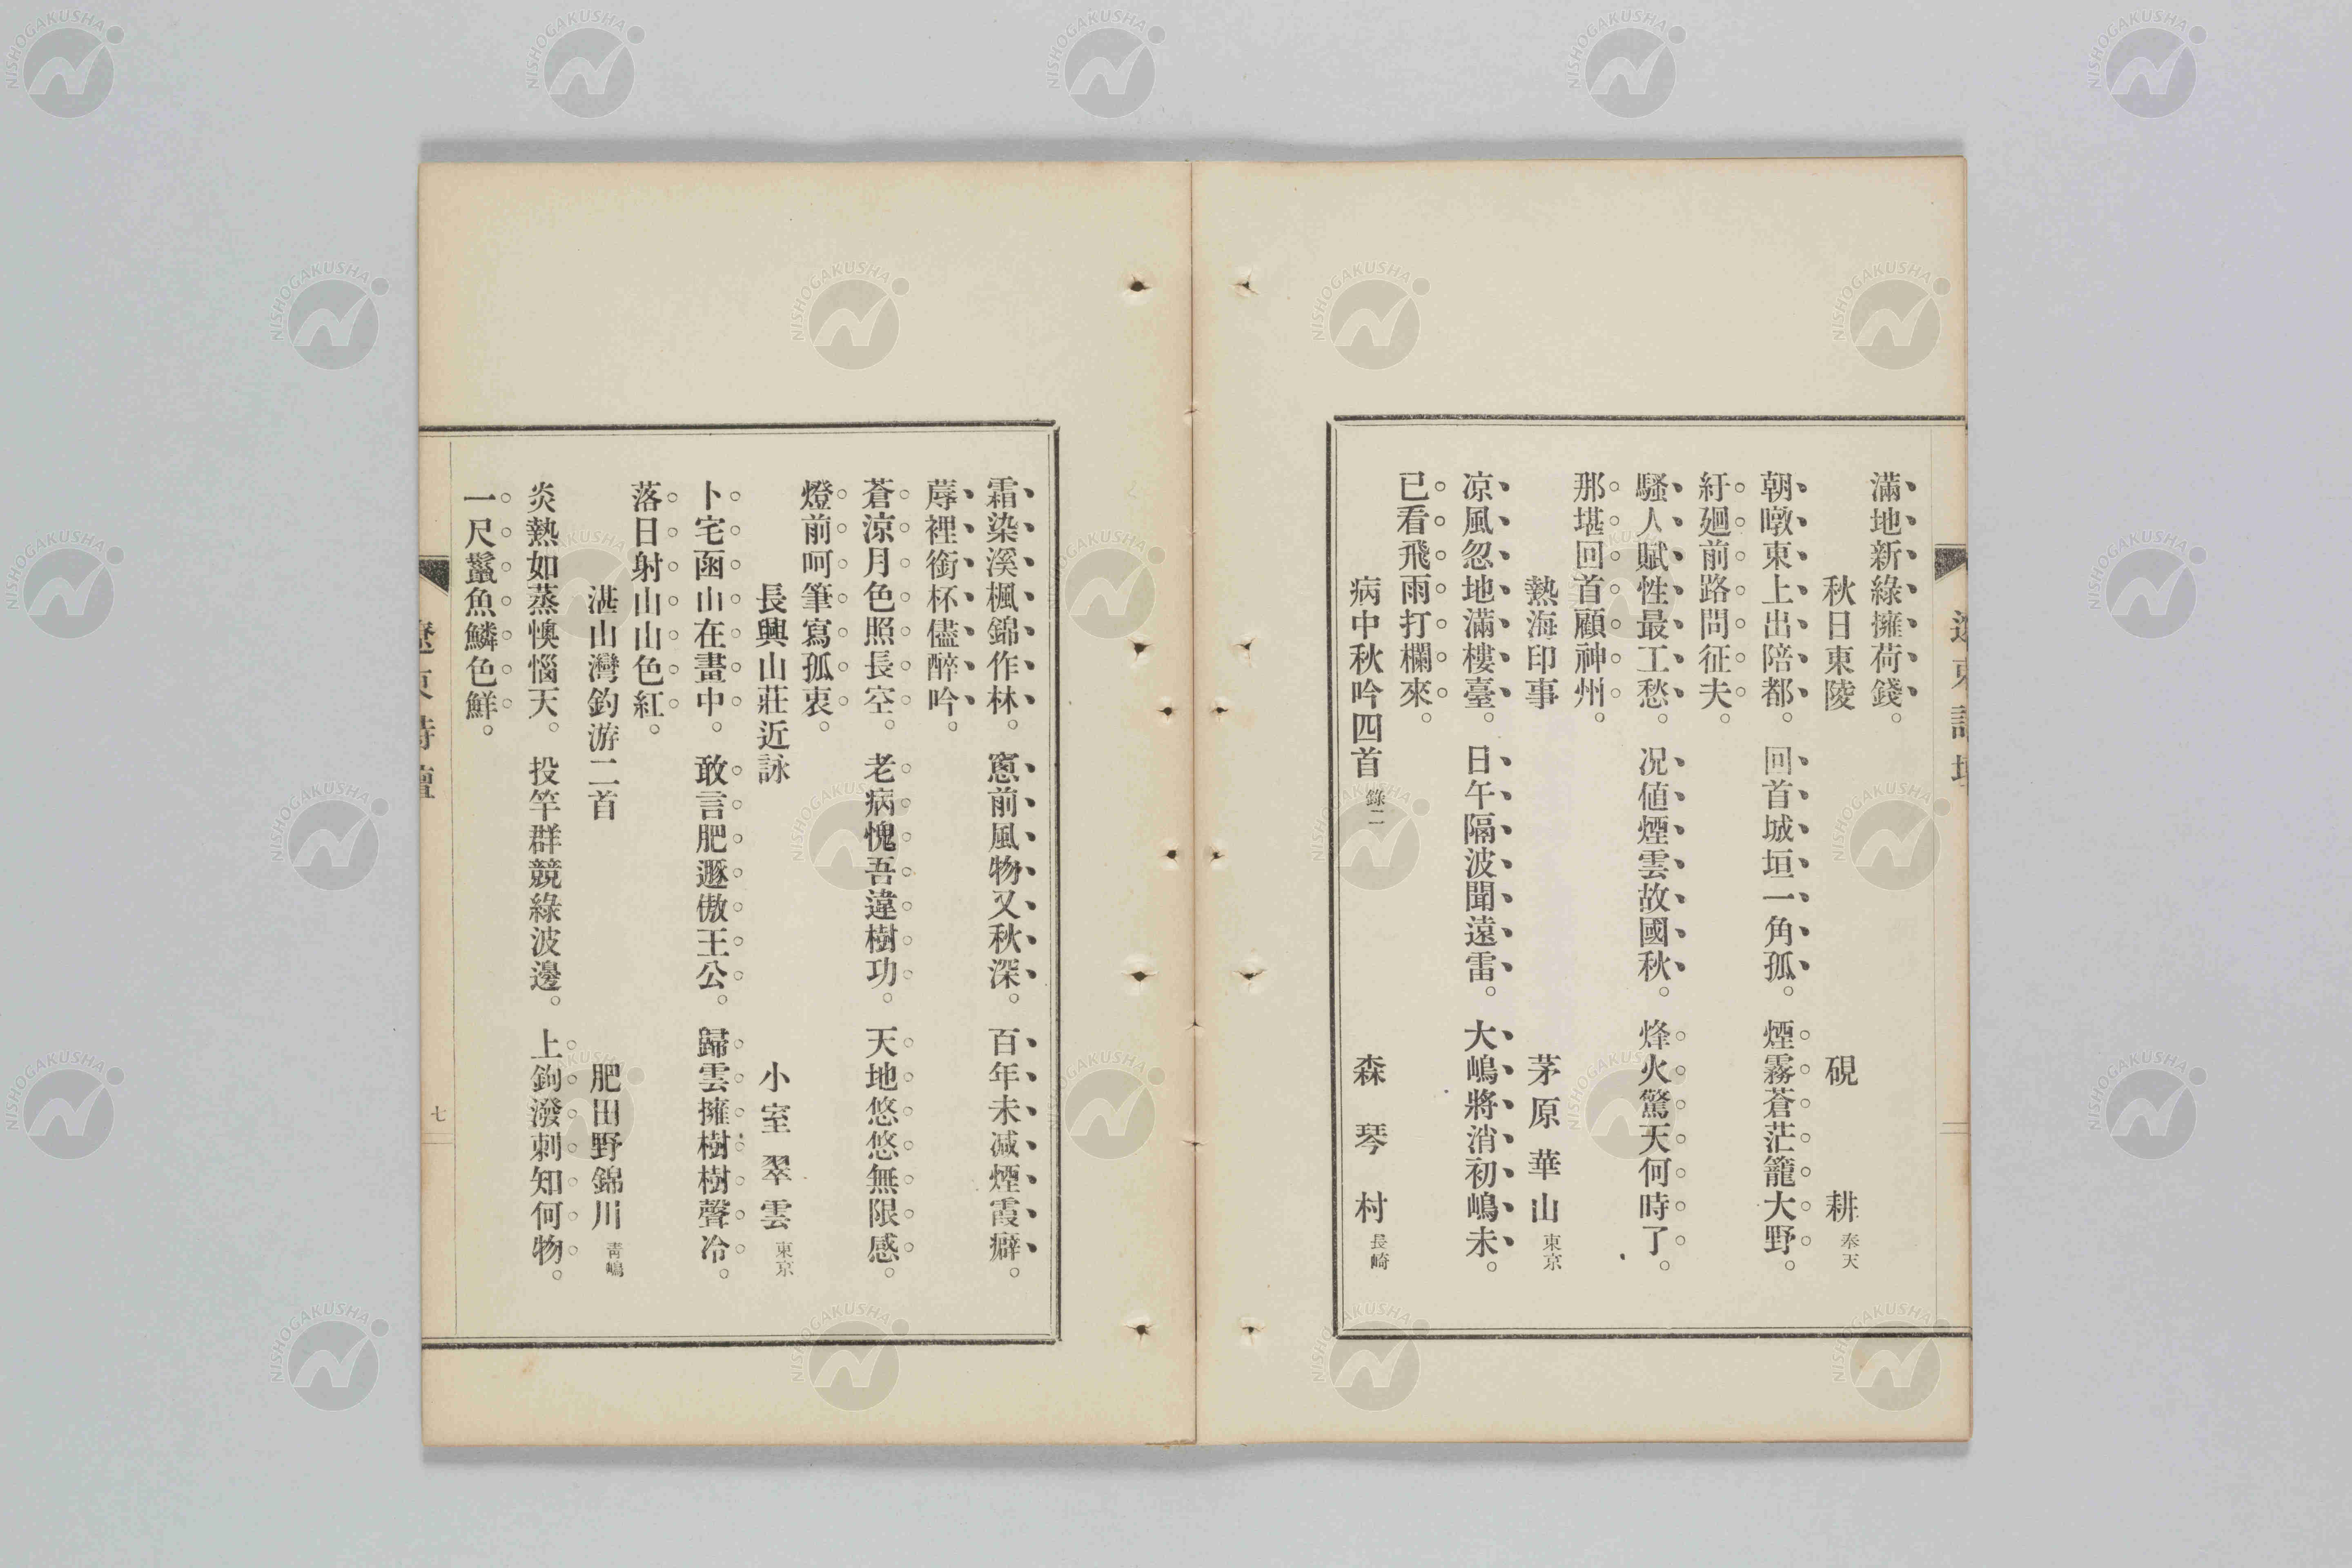 遼東詩壇
滿地新綠擁荷錢。
秋日東陵　硯耕 奉天
朝暾東上出陪都。回首城垣一角孤。煙霧蒼茫籠大野。
紆廻前路問征夫。
騷人賦性最工愁。況値煙雲故國秋。烽火驚天何時了。
那堪回首顧神州。
熱海印事　茅原華山 東京
凉風忽地滿樓臺。日午隔波聞遠雷。大嶋將消初嶋未。
已看飛雨打欄來。
病中秋吟四首 錄二　森琴村 長崎
霜染溪楓錦作林。窻前風物又秋深。百年未減煙霞癖。
蓐裡銜杯儘醉吟。
蒼凉月色照長空。老病愧吾違樹功。天地悠悠無限感。
燈前呵筆寫孤衷。
長興山莊近詠　小室翠雲 東京
卜宅函山在畫中。敢言肥遯傲王公。歸雲擁樹樹聲冷。
落日射山山色紅。
湛山灣釣游二首　肥田野錦川 靑嶋
炎熱如蒸懊惱天。投竿群競綠波邊。上鉤潑剌知何物。
一尺鱶魚鱗色鮮。
遼東詩壇
七
NISHOGAKUSHA